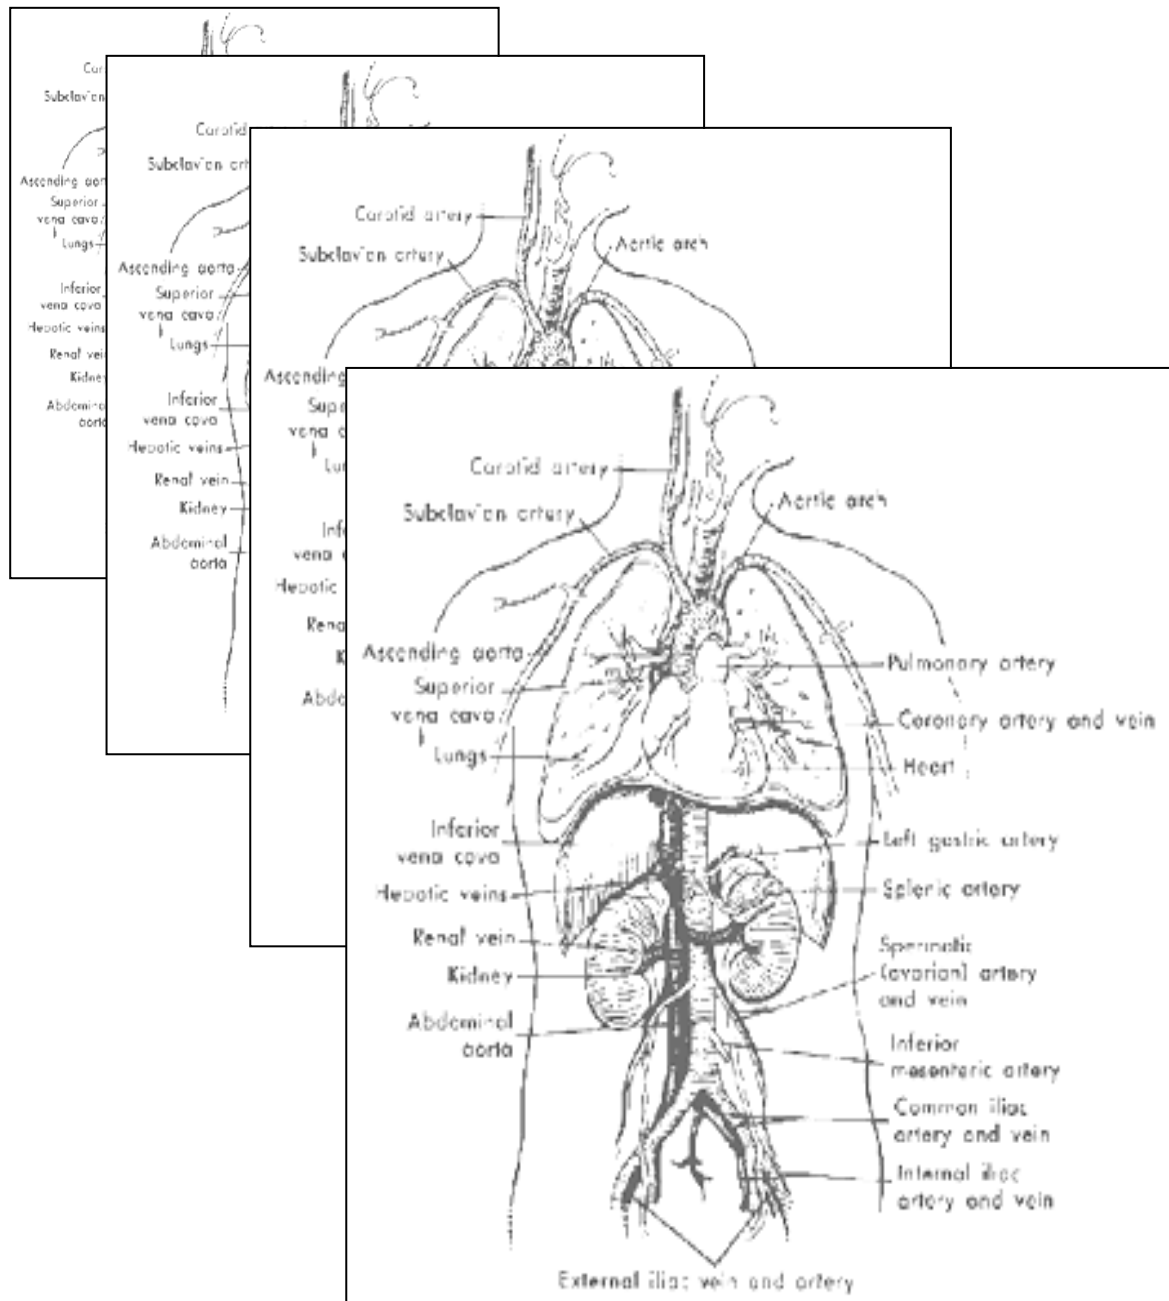 Car
Subclavian
Ascending aort
Superior
vena cava
Lungs
Inferior
vena cava
Hepatic veins
Renal vei
Kidney
Abdomina
aorta
Carotid
Subclavian art
Ascending aorta
Superior
vena cava
Lungs
Inferior
vena cava
Hepatic veins
Renal vein
Kidney
Abdominal
aorta
Carotid artery
Subclavian artery
Aortic arch
Ascending
Supe
vena c
Lu
Inf
vena c
Hepatic
Rena
K
Abdo
Carotid artery
Subclavian artery
Aortic arch
Ascending aorta
Superior
vena cava
Lungs
Inferior
vena cava
Hepatic veins
Renal vein
Kidney
Abdominal
aorta
Pulmonary artery
Coronary artery and vein
Heart
Left gastric artery
Splenic artery
Spermatic
(ovarian) artery
and vein
Inferior
mesenteric artery
Common iliac
artery and vein
Internal iliac
artery and vein
External iliac vein and artery